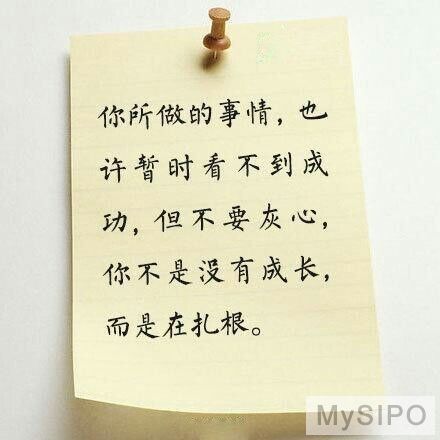 你所做的事情，也
许暂时看不到成
功，但不要灰心，
你不是没有成长，
而是在扎根。
MySIPO